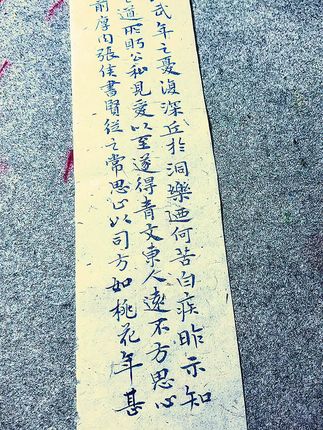 武年之憂復深丘於洞樂迺何苦白疾昨示知
道所躬公私見愛以至遂得青文東人遠不方思心
前厚內張侯書賢從之常思心以司方如桃花年甚